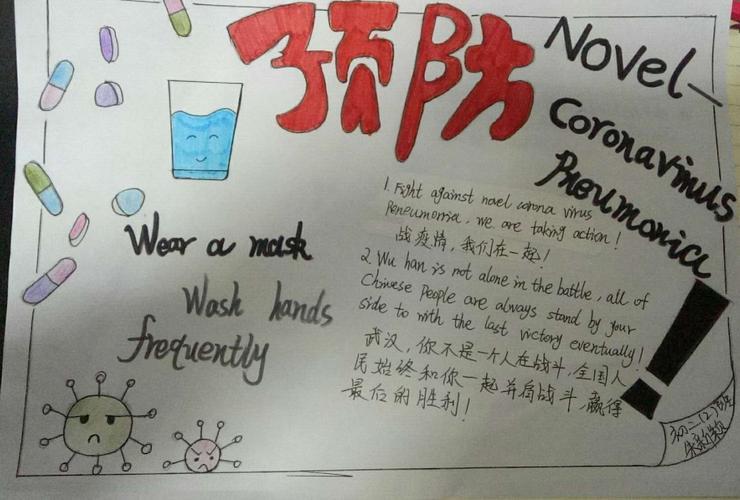 预防
Novel
Coronavirus
Pneumonia!
1. Fight against novel corona virus
Peneumonria, we are taking action!
战疫情，我们在一起！
2. Wu han is not alone in the battle, all of
Chinese People are always stand by your
side to with the last victory eventually!
武汉，你不是一个人在战斗，全国人
民始终和你一起并肩战斗，赢得
最后的胜利！
Wear a mask
Wash hands
frequently
初二(2)班